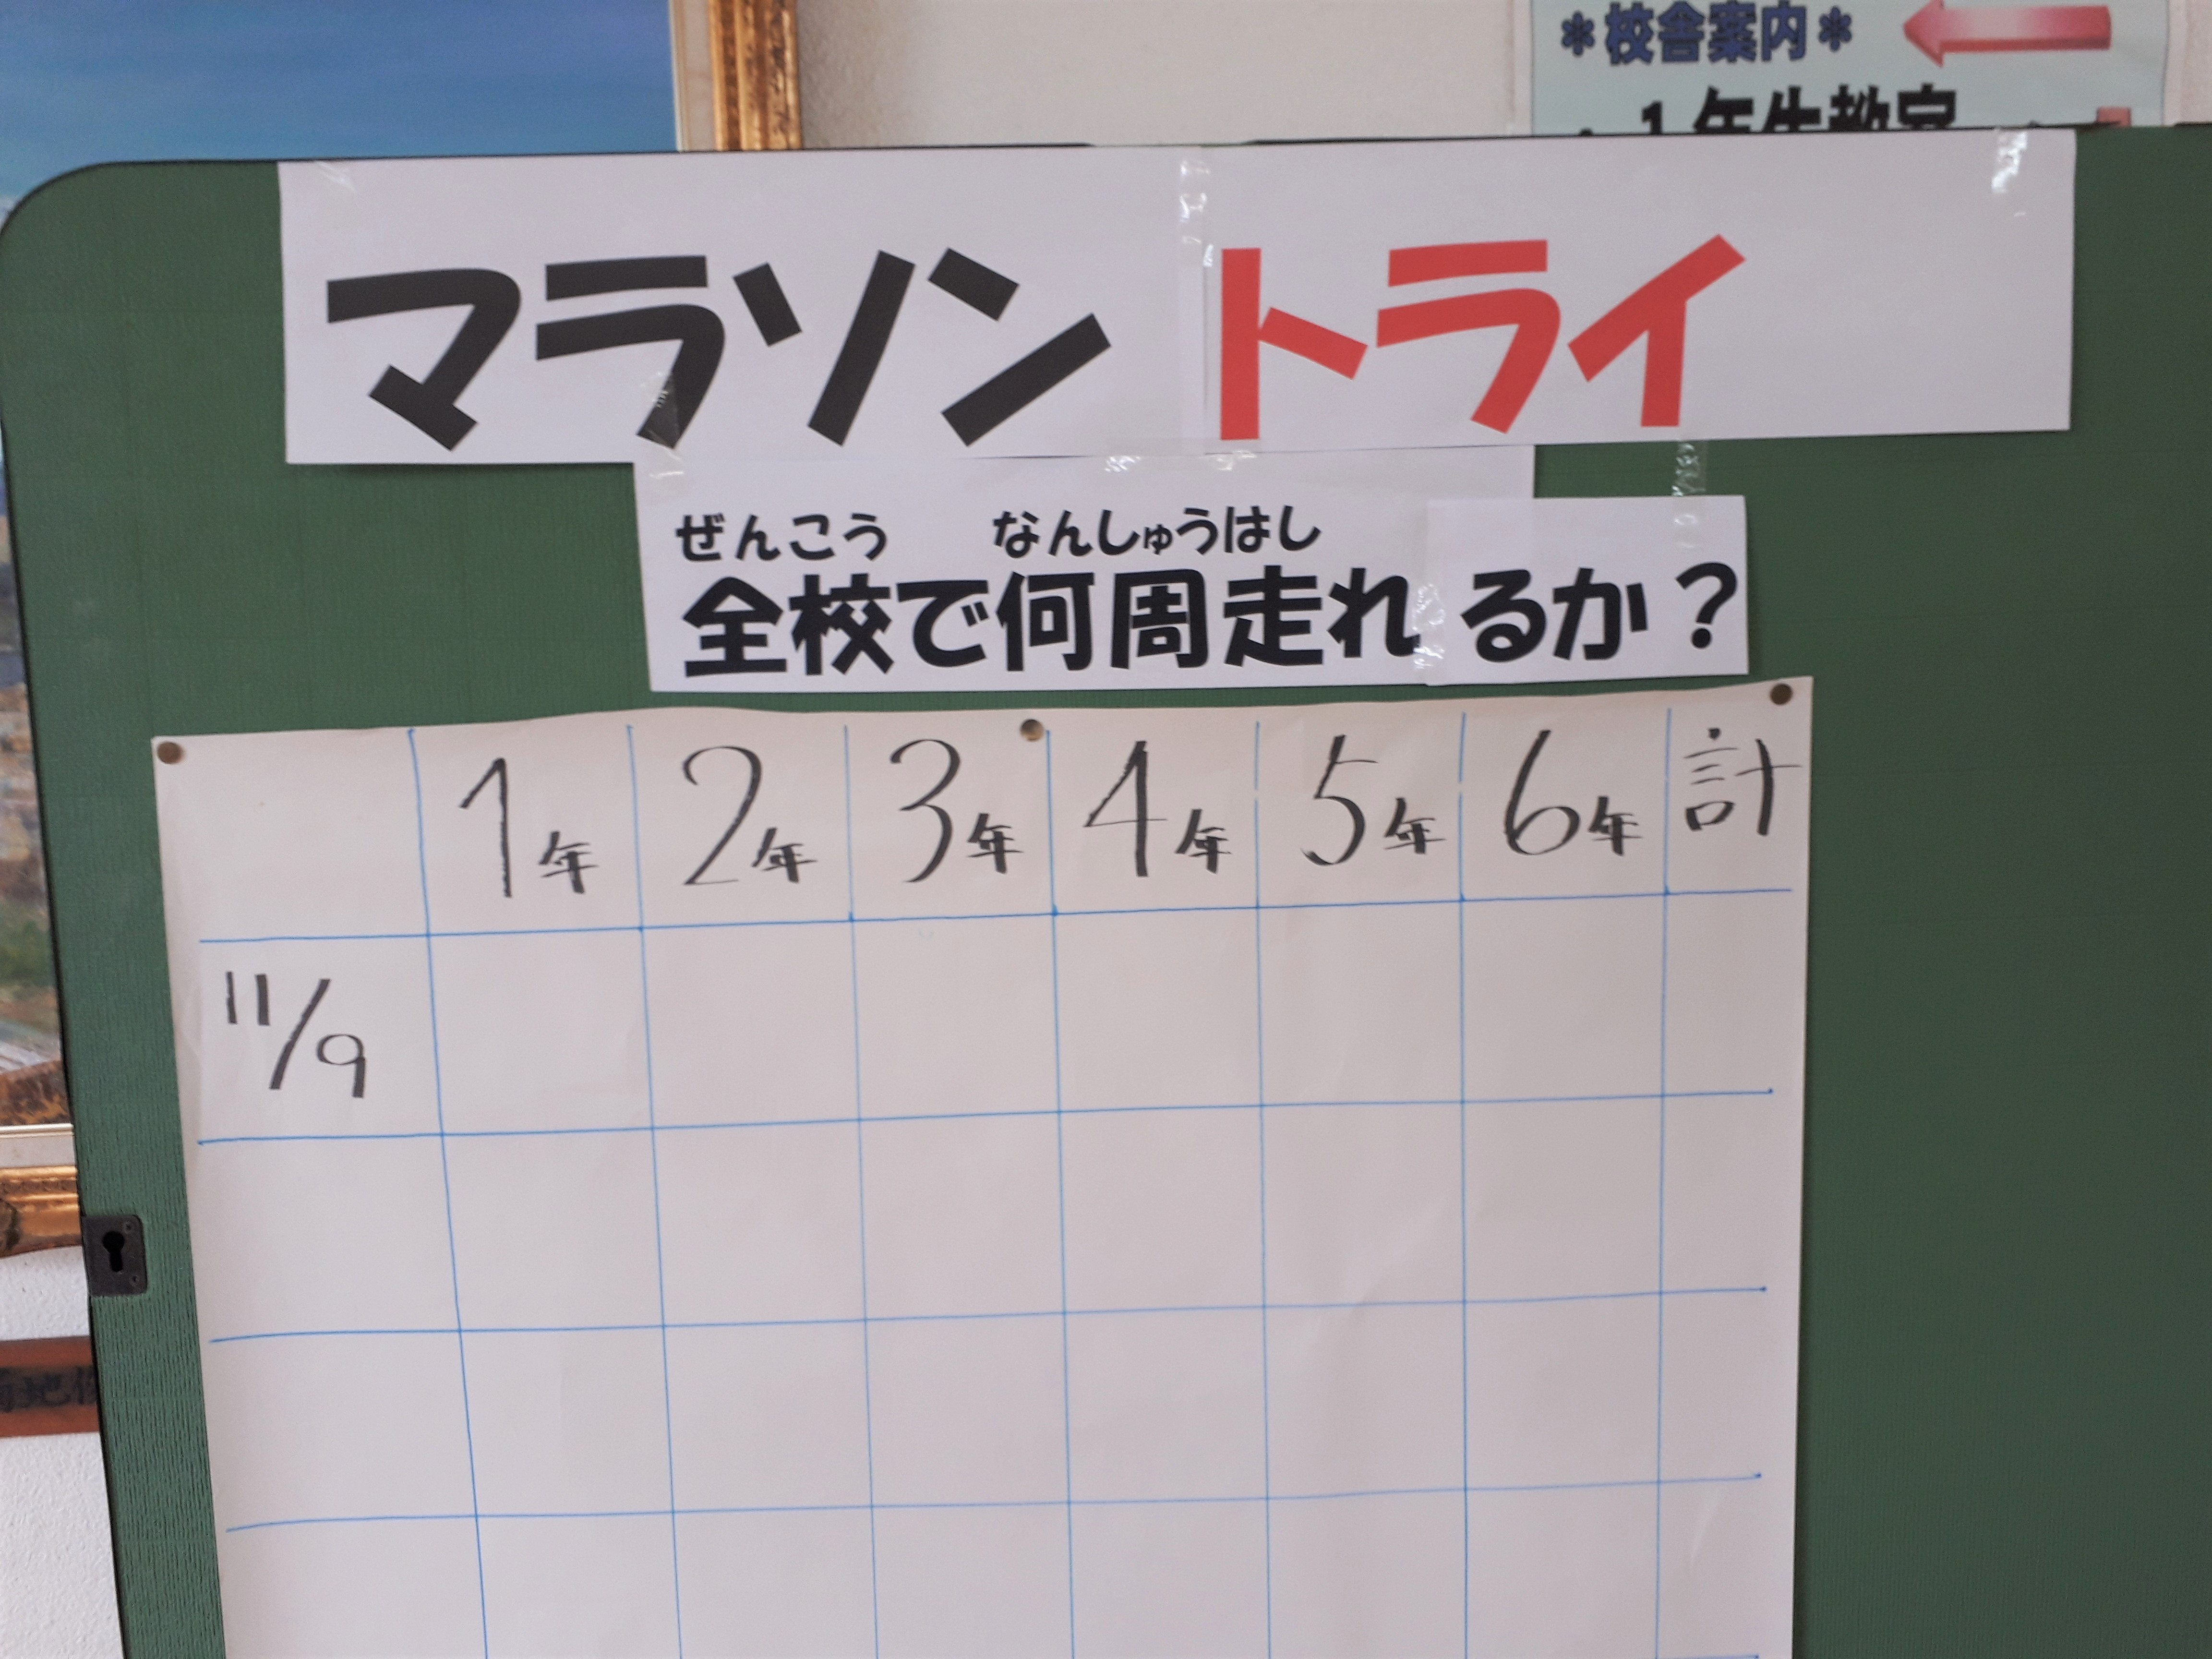 ＊校舎案内＊
・１年生教室
マラソントライ
ぜんこう なんしゅうはし
全校で何周走れるか？
1年 2年 3年 4年 5年 6年 計
11/9